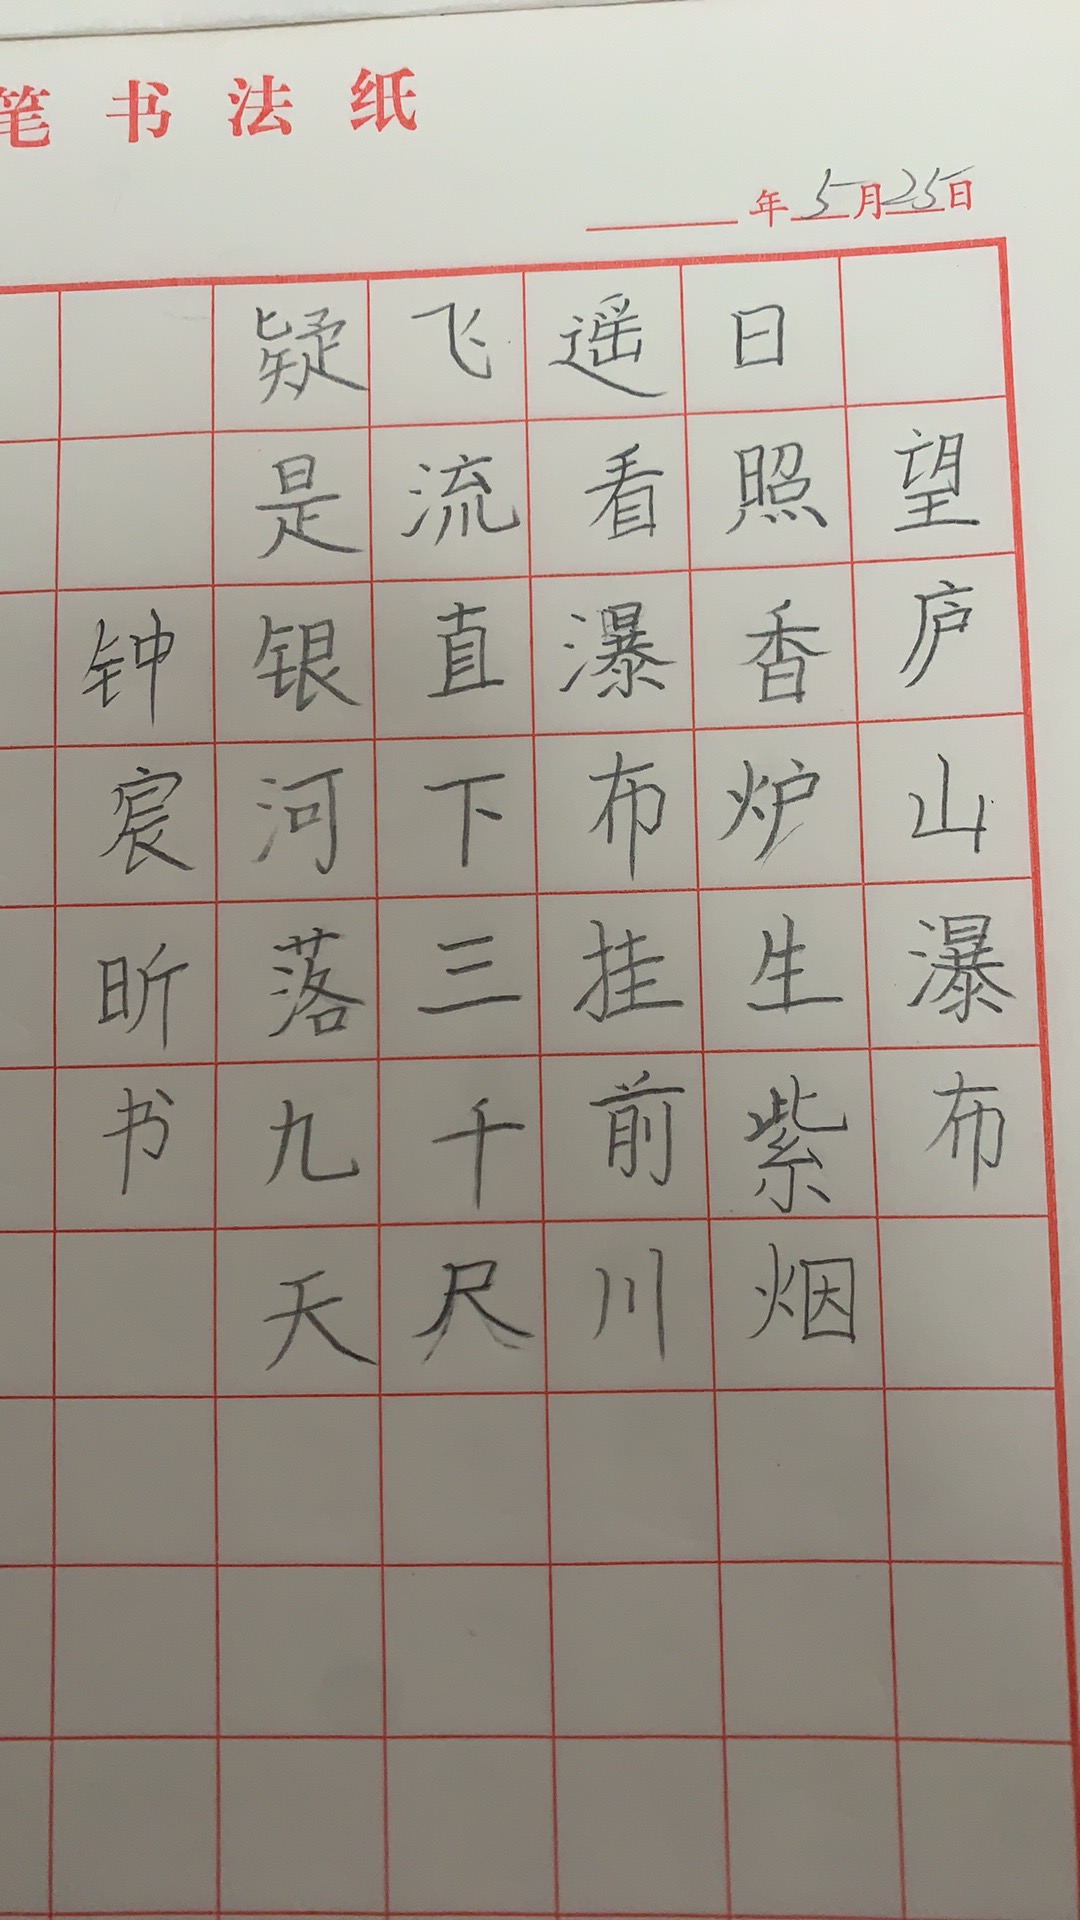 笔书法纸
年5月25日
望庐山瀑布
日照香炉生紫烟
遥看瀑布挂前川
飞流直下三千尺
疑是银河落九天
钟宸昕书